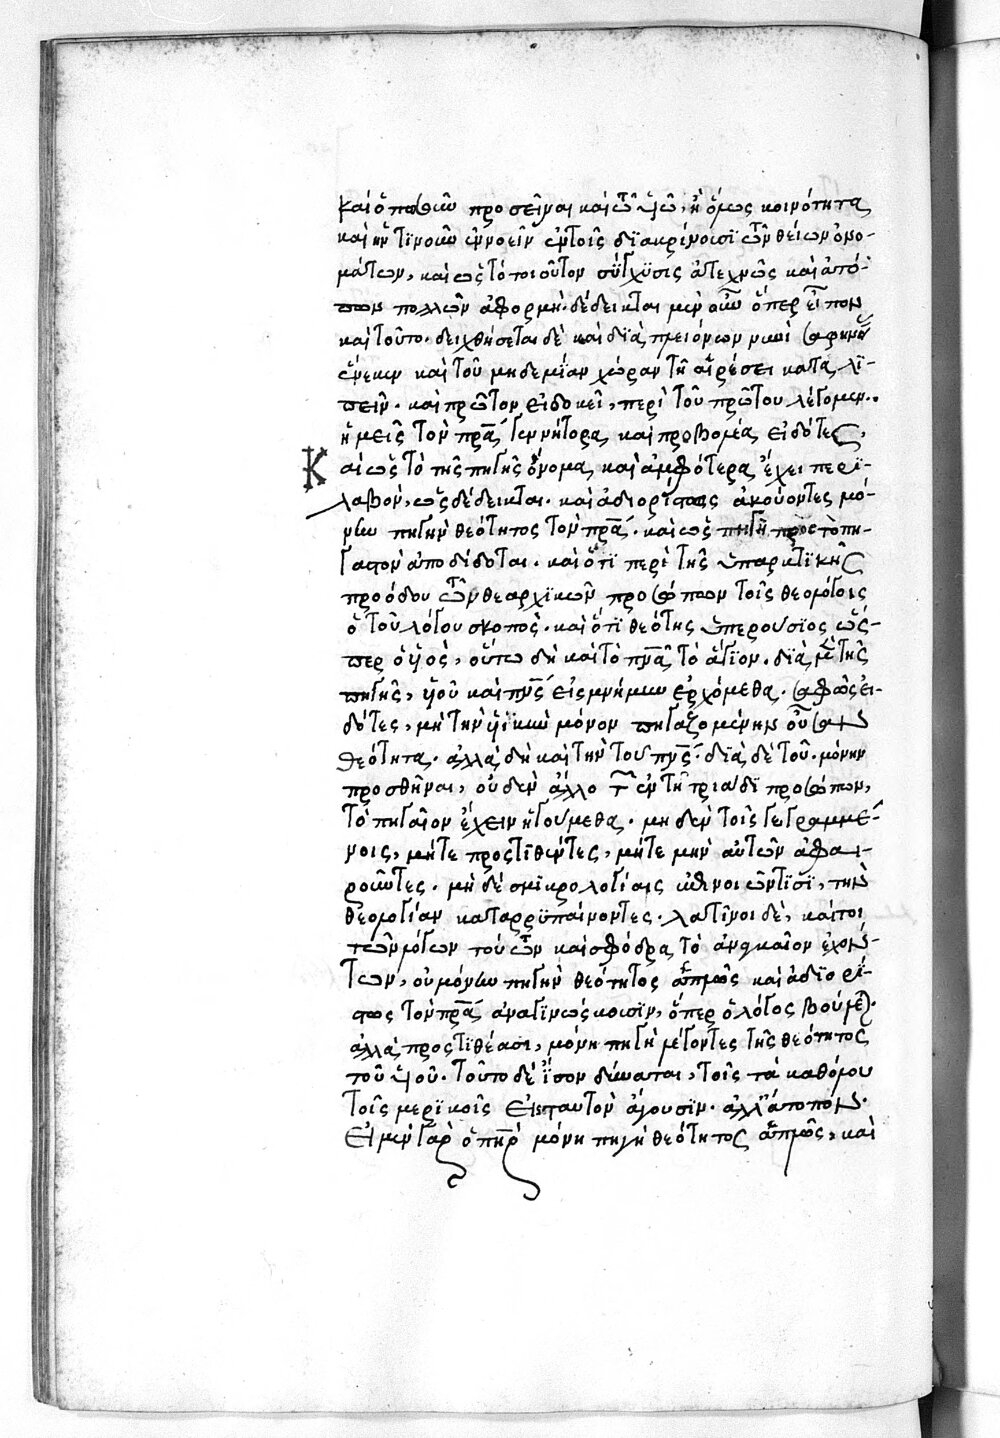 καὶ ὁπωσοῦν προσεῖναι καὶ τῶ υἱῶ, ἢ ὅμως κοινότητα
καὶ ἥντινοῦν ἐννοεῖν ἐν τοῖς διακρίνουσι τῶν θείων ὀνο-
μάτων, καὶ ὡς τὸ τοιοῦτον σύγχυσις ἀτεχνῶς καὶ ἀτό-
πων πολλῶν ἀφορμή. δέδεικται μὲν οὖν ὅπερ εἶπον
καὶ τοῦτο. δειχθήσεται δὲ καὶ διὰ πλειόνων νυνὶ σαφηνεί
ἕνεκεν καὶ τοῦ μηδεμίαν χώραν τῆ αἱρέσει καταλι-
πεῖν. καὶ πρῶτον εἰ δοκεῖ, περὶ τοῦ πρώτου λέγομεν..
ἡμεῖς τὸν πρα γεννήτορα καὶ προβολέα εἰδότες,
Καὶ ὡς τὸ τῆς πηγῆς ὄνομα, καὶ ἀμφότερα ἔχει περι-
λαβὸν, ὡς δέδεικται. καὶ ἀδιορίστως ἀκούοντες μό-
νην πηγὴν θεότητος τὸν πρα. καὶ ὡς πηγὴ πρὸς τὸ πη-
γαῖον ἀποδίδοται. καὶ ὅτι περὶ τῆς ὑπαρκτικῆς
προόδου τῶν θεαρχικῶν προσώπων τοῖς θεολόγοις
ὁ τοῦ λόγου σκοπὸς. καὶ ὅτι θεότης ὑπερούσιος ὥσ-
περ ὁ υἱὸς, οὕτω δὴ καὶ τὸ πνα τὸ ἅγιον. διὰ μὲν τῆς
πηγῆς, υἱοῦ καὶ πνς εἰς μνήμην ἐρχόμεθα. σαφῶς εἰ-
δότες, μὴ τὴν υἱϊκὴν μόνον πηγαζομένην οὖσαν
θεότητα. ἀλλὰ δὴ καὶ τὴν τοῦ πνς. διὰ δὲ τοῦ. μόνην
προσθῆναι, οὐδὲν ἄλλο τῶν ἐν τῆ τριάδι προσώπων,
τὸ πηγαῖον ἔχειν ἡγούμεθα. μηδὲν τοῖς γεγραμμέ-
νοις, μήτε προστιθέντες, μήτε μὴν αὐτῶν ἀφαι-
ροῦντες. μηδὲ σμικρολογίαις ὠθινοι ὧντισι, τὴν
θεολογίαν καταρρυπαίνοντες. λατῖνοι δὲ, καίτοι
τῶν λόγων τούτων καὶ σφόδρα τὸ ἀναγκαῖον ἐχόν-
των, οὐ μόνην πηγὴν θεότητος ἁπλῶς καὶ ἀδιορί-
στως τὸν πρα ἀναγινώσκουσιν, ὅπερ ὁ λόγος βούλε.
ἀλλὰ προστιθέασι, μόνη πηγὴ λέγοντες τῆς θεότητος
τοῦ υἱοῦ. τοῦτο δὲ ἴσον δύναται, τοῖς τὰ καθόλου
τοῖς μερικοῖς εἰς ταυτὸν ἄγουσιν. ἀλλ' ἄτοπον.
Εἰ μὲν γὰρ ὁ πηρ μόνη πηγὴ θεότητος ἁπλῶς, καὶ